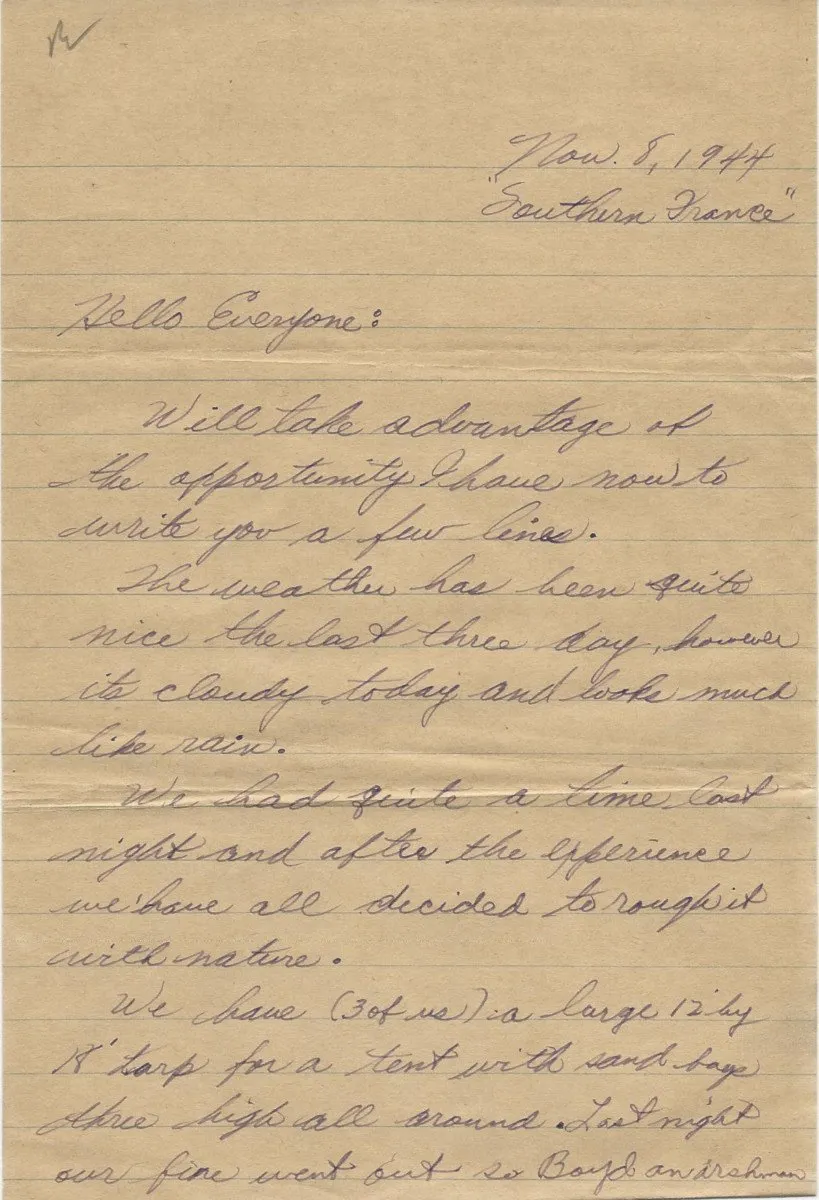 Nov. 8, 1944
"Southern France"
Hello Everyone:
Will take advantage of
the opportunity I have now to
write you a few lines.
The weather has been quite
nice the last three day, however
its cloudy today and looks much
like rain.
We had quite a time last
night and after the experience
we have all decided to rough it
with nature.
We have (3 of us) a large 12' by
tarp for a tent with sand bags
three high all around. Last night
our fire went out so Boyd an